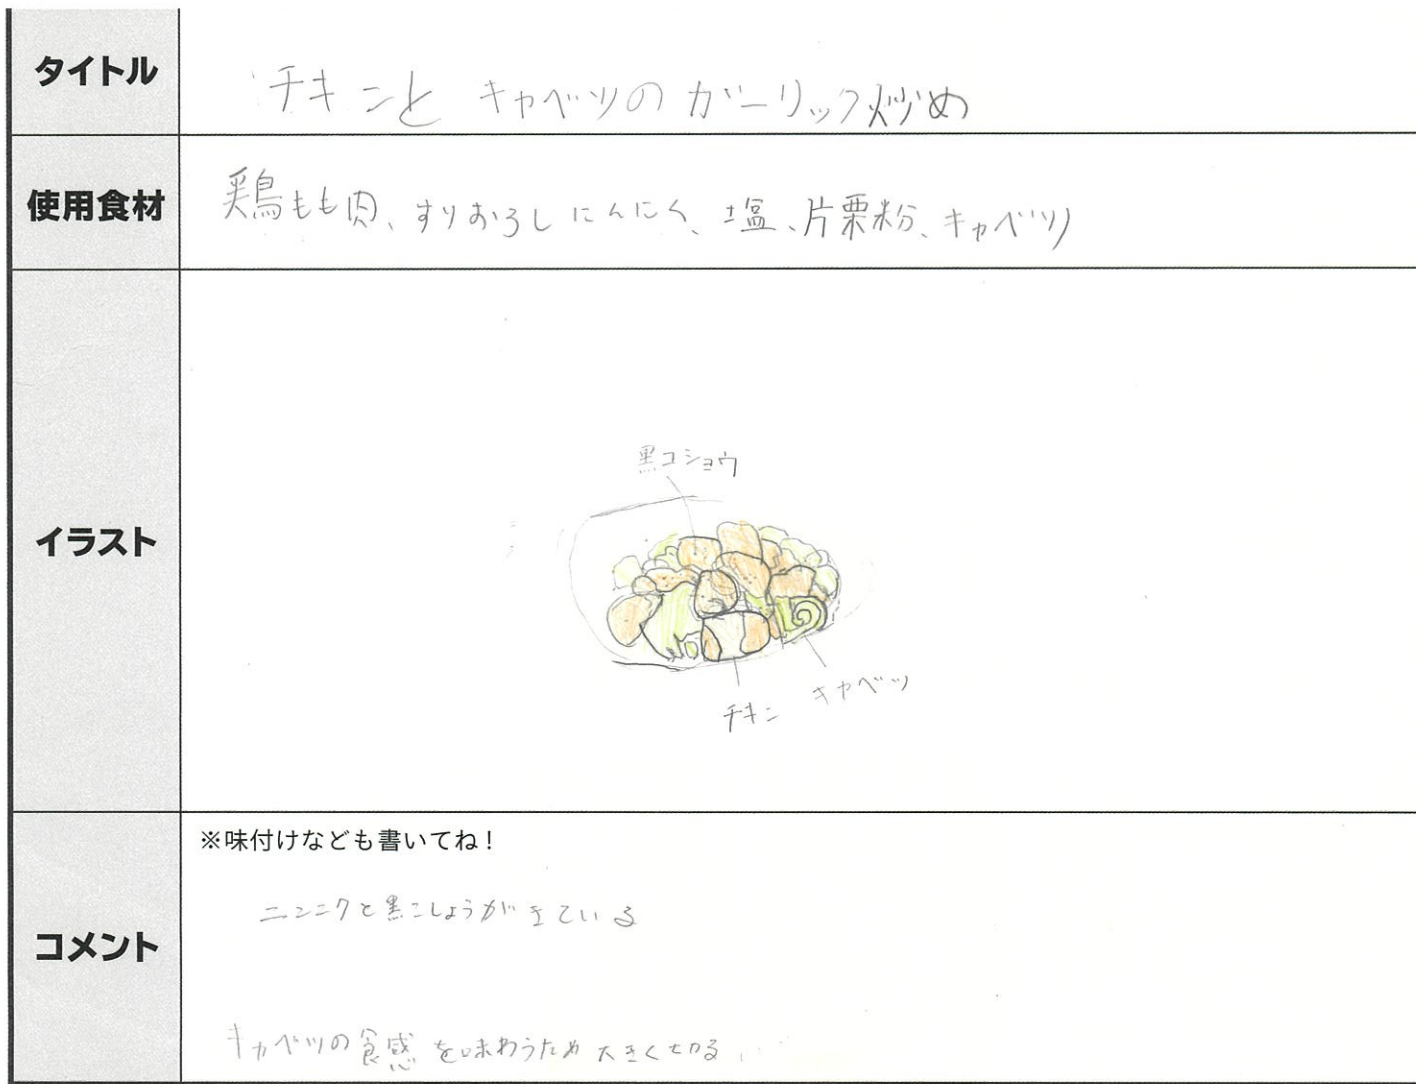 タイトル
チキンと キャベツの ガーリック炒め
使用食材
鶏もも肉、すりおろしにんにく、塩、片栗粉、キャベツ
イラスト
黒コショウ
キャベツ
チキン
コメント
※味付けなども書いてね！
ニンニクと黒こしょうがきている
キャベツの食感を味わうため大きく切る